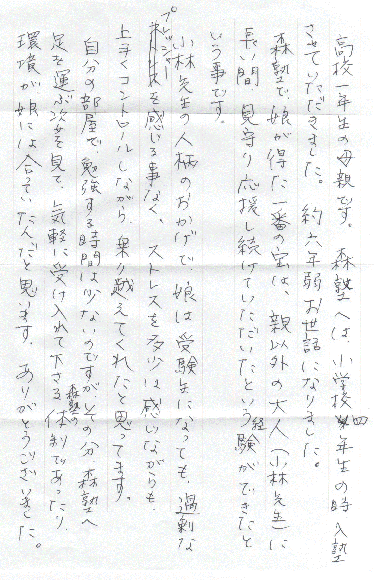 高校一年生の母親です。森塾へは小学校四年生の時入塾
させていただきました。約六年弱お世話になりました。
森塾で、娘が得た一番の宝は、親以外の大人（小林先生）に
長い間見守り応援し続けていただいたという経験ができたと
いう事です。
小林先生の人柄のおかげで、娘は受験生になっても、過剰な
プレッシャーを感じる事なく、ストレスを多少は感じながらも、
上手くコントロールしながら、乗り越えてくれたと思ってます。
自分の部屋で勉強する時間は少ないのですが、その分森塾へ
足を運ぶ姿を見て、気軽に受け入れて下さる森塾の体制であったり、
環境が娘には合っていたんだと思います。ありがとうございました。